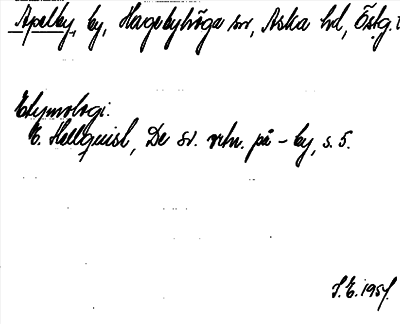 Apelby, by, Hagebyhöga sn, Aska hd, Östg.
Etymologi.
E. Hellquist, De sv. ortn. på -by, s. 5.
S.E. 1951.